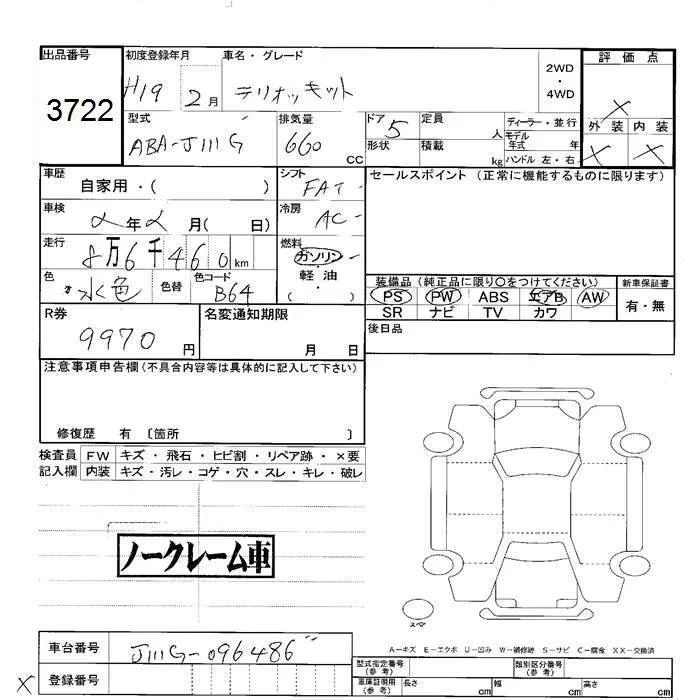 出品番号 初度登録年月 車名・グレード 2WD・4WD 評価点
3722 H19 2月 テリオスキット ×
型式 排気量 ドア 定員 ディーラー・並行 外装 内装
ABA-J111G 660 CC 5 人 モデル年式 年 × ×
形状 積載 kg ハンドル 左・右
車歴 シフト セールスポイント (正常に機能するものに限ります)
自家用・( ) FAT
車検 冷房
年 月( 日) AC
走行 燃料
8万6千460km ガソリン・軽油・( )
色 色替 色コード 装備品(純正品に限り○をつけてください) 新車保証書
水色 B64 PS PW ABS エアB AW 有・無
SR ナビ TV カワ
R券 名変通知期限 後日品
9970円 月 日
注意事項申告欄(不具合内容等は具体的に記入して下さい)
修復歴 有 〔箇所 〕
検査員 FW キズ・飛石・ヒビ割・リペア跡・×要
記入欄 内装 キズ・汚レ・コゲ・穴・スレ・キレ・破レ
ノークレーム車
スペア
A−キズ E−エクボ U−凹み W−補修跡 S−サビ C−腐食 XX−交換済
車台番号 J111G-096486
型式指定番号(参考) 類別区分番号(参考)
× 登録番号
車庫証明用(参考) 長さ cm 幅 cm 高さ cm